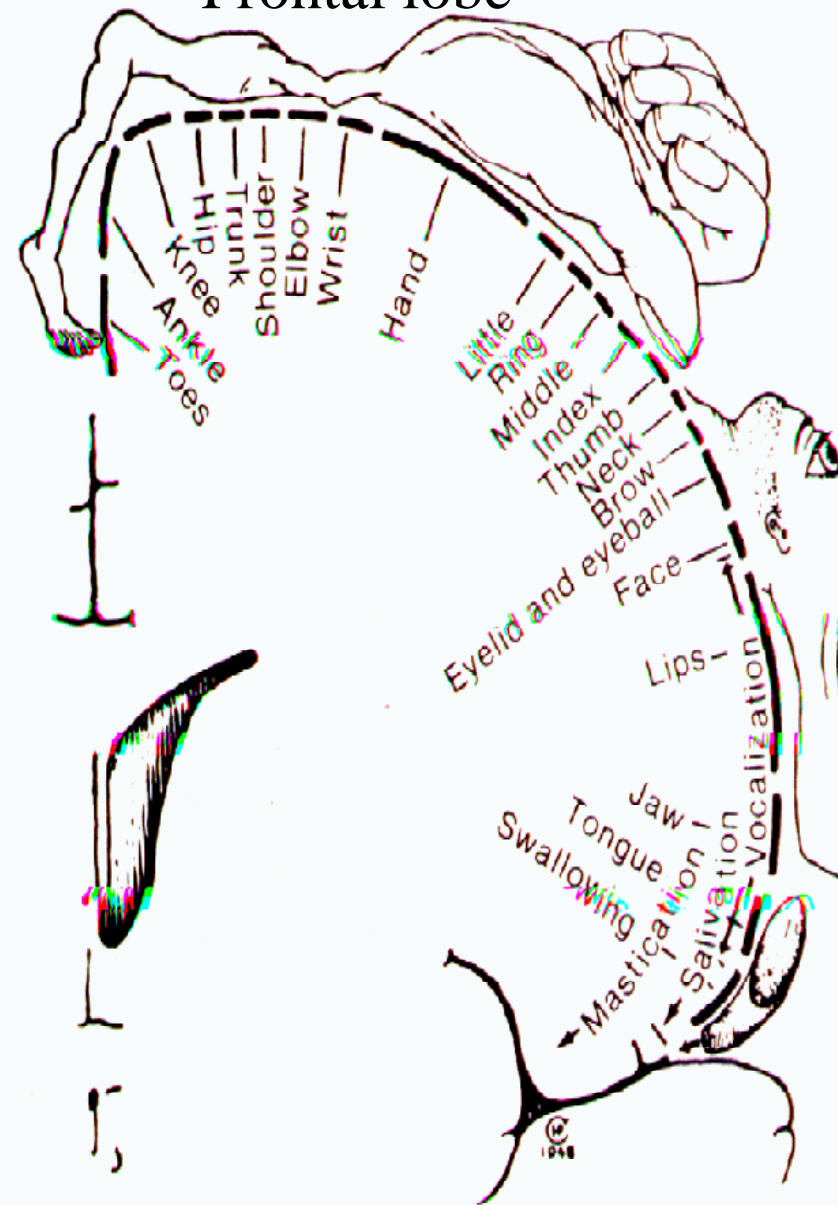 Frontal lobe
Toes
Ankle
Knee
Hip
Trunk
Shoulder
Elbow
Wrist
Hand
Little
Ring
Middle
Index
Thumb
Neck
Brow
Eyelid and eyeball
Face
Lips
Vocalization
Jaw
Tongue
Swallowing
Mastication
Salivation
1948